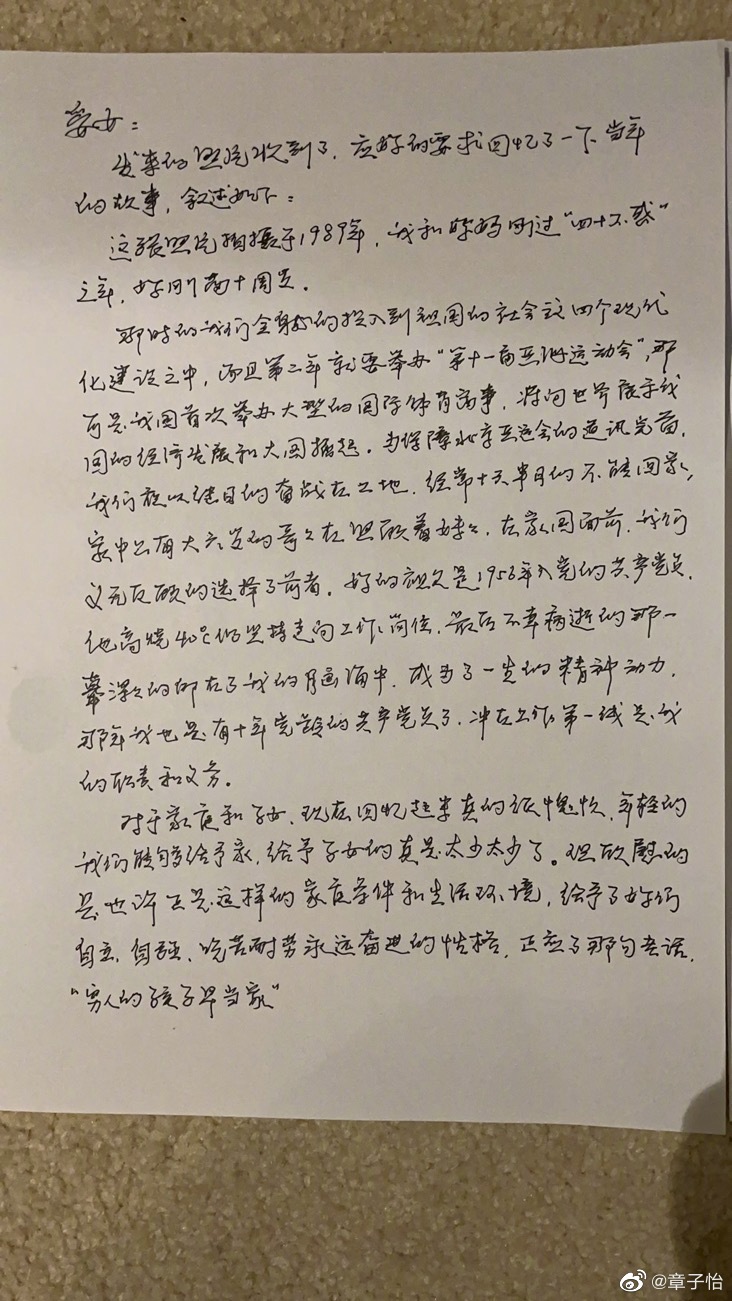 爱女：
发来的照片收到了，应你的要求回忆了一下当年
的故事，叙述如下：
这张照片拍摄于1989年，我和你妈刚过“四十不惑”
之年，你刚满十周岁。
那时的我们全身心的投入到祖国的社会主义四个现代
化建设之中，而且第二年就要举办“第十一届亚洲运动会”，那
可是我国首次举办大型的国际体育赛事，将向世界展示我
国的经济发展和大国崛起。为保障北京亚运会的通讯完善，
我们夜以继日的奋战在工地，经常十天半月的不能回家，
家中只有大六岁的哥々在照顾着妹々，在家国面前，我们
义无反顾的选择了前者。你的祖父是1956年入党的共产党员，
他高烧40℃仍坚持走向工作岗位，最后不幸病逝的那一
幕深々的印在了我的脑海中，成为了一生的精神动力，
那年我也是有十年党龄的共产党员了，冲在工作第一线是我
的职责和义务。
对于家庭和子女，现在回忆起来真的很愧疚，年轻的
我们能够给予家，给予子女的真是太少太少了。但欣慰的
是也许正是这样的家庭条件和生活环境，给予了你们
自立、自强、吃苦耐劳永远奋进的性格，正应了那句老话，
“穷人的孩子早当家”
@章子怡